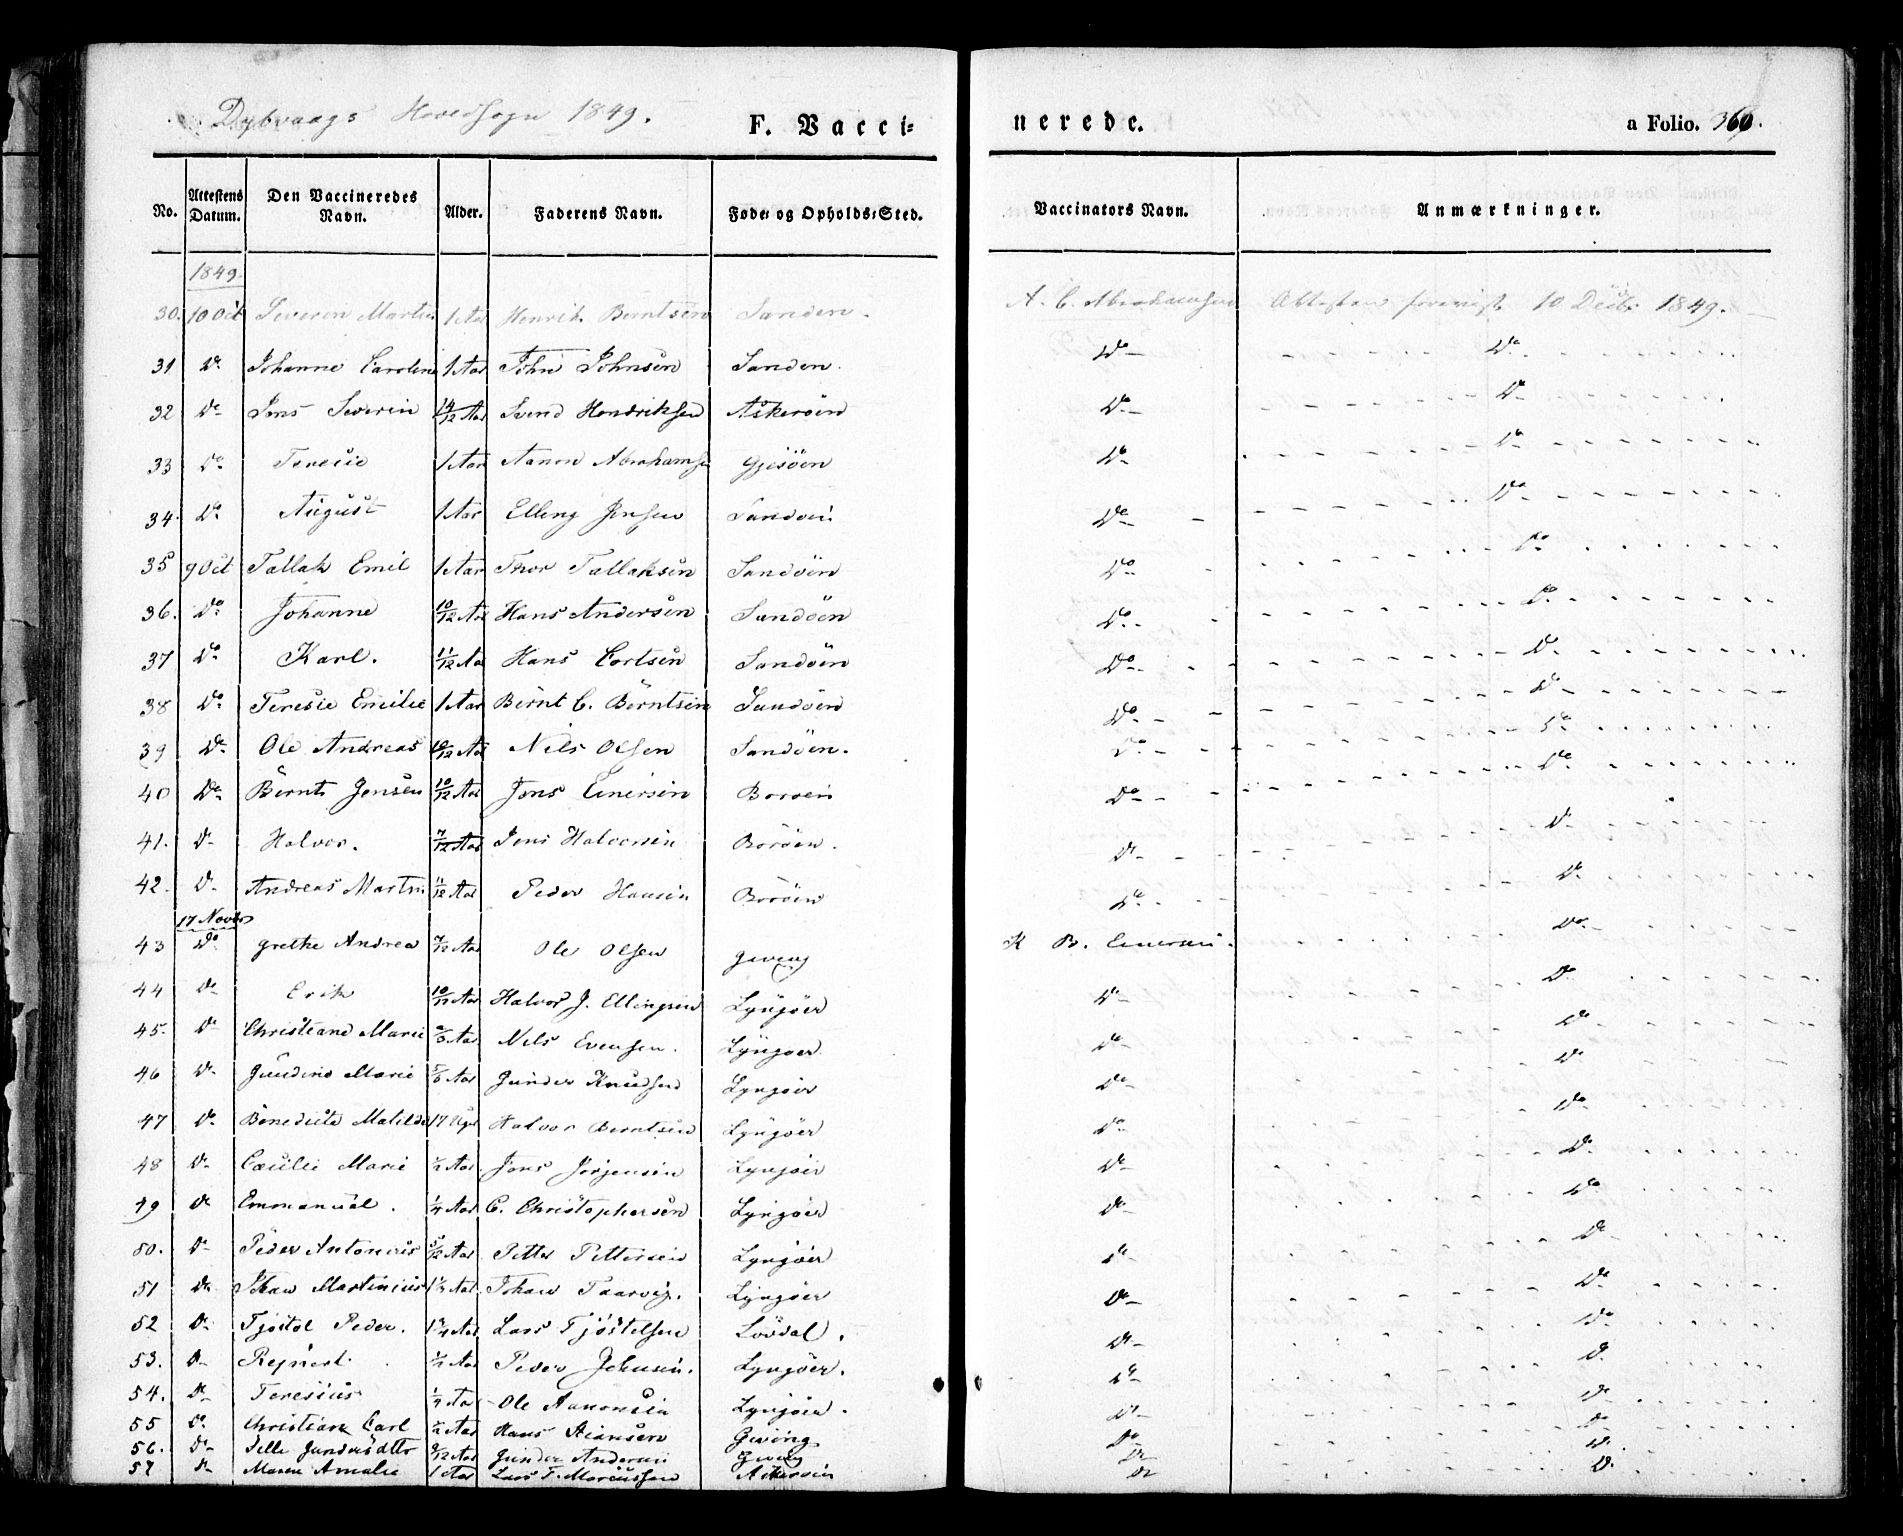 Dybvaags Hovedsogn 1849. F. Vacci=
nerede. a Folio. 360.
No. Attestens Datum. Den Vaccineredes Navn. Alder. Faderens Navn. Føde= og Opholds=Sted. Vaccinators Navn. Anmærkninger.
1849
30. 10 Oct Severin Martin 1 Aar Henrik Berntsen Sanden. A. C. Abrahamsen Attesten foreviist 10 Decbr 1849.
31 Do Johanne Caroline 1 Aar John Johnsen Sanden. Do Do
32 Do Jens Severin 14/12 Aar Svend Hendriksen Askerøen Do Do
33 Do Teresie 1 Aar Aanon Abrahamsen Gjesøen Do Do
34. Do August 1 Aar Elling Jensen Sandøen Do Do
35 9 Oct Tallak Emil 1 Aar Thor Tallaksen Sandøen Do Do
36. Do Johanne 10/12 Aar Hans Andersen Sandøen Do Do
37 Do Karl. 11/12 Aar Hans Cortsen Sandøen Do Do
38 Do Teresie Emilie 1 Aar Bernt C. Berntsen Sandøen Do Do
39 Do Ole Andreas 10/12 Aar Nils Olsen Sandøen. Do Do
40 Do Bernt Jensen 10/12 Aar Jens Einersen Borøen Do Do
41. Do Halvor. 7/12 Aar Jens Halvorsen Borøen. Do Do
42. Do Andreas Martin 11/12 Aar Peder Hansen Borøen Do Do
17 Novbr
43 Do Grethe Andrea 7/12 Aar Ole Olsen Gieving K B. Einersen. Do
44 Do Erik 10/12 Aar Halvor J. Ellingsen Lyngøer Do Do
45. Do Christiane Marie Aar Nils Evensen. Lyngøer Do Do
46 Do Gundine Marie Aar Gunder Knudsen Lyngøer Do Do
47 Do Benedicte Matilde 17 Uger Halvor Berntsen Lyngøer Do Do
48 Do Cæcilie Marie 1/2 Aar Jens Jørgensen Lyngøer Do Do
49 Do Emmanuel. 1/4 Aar C. Christophersen Lyngøer Do Do
50. Do Peder Antonius 5/12 Aar Petter Pettersen Lyngøer Do Do
51 Do Johan Martinius Aar Johan Taarvig. Lyngøer Do Do
52 Do Tjøstel Peder. Aar Lars Tjøstelsen Løvdal. Do Do
53. Do Reinert. 1/2 Aar Peder Johnsen. Lyngøer. Do Do
54. Do Teresius Aar Ole Aanonsen Lyngøer. Do Do
55 Do Christian Carl 1/2 Aar Hans Gieving Do Do
56. Do Gundersdtter 9/12 Aar Gunder Andersen Gieving Do Do
57 Do Maren Amalie 1 Aar Lars T. Marcussen Askerøen Do Do